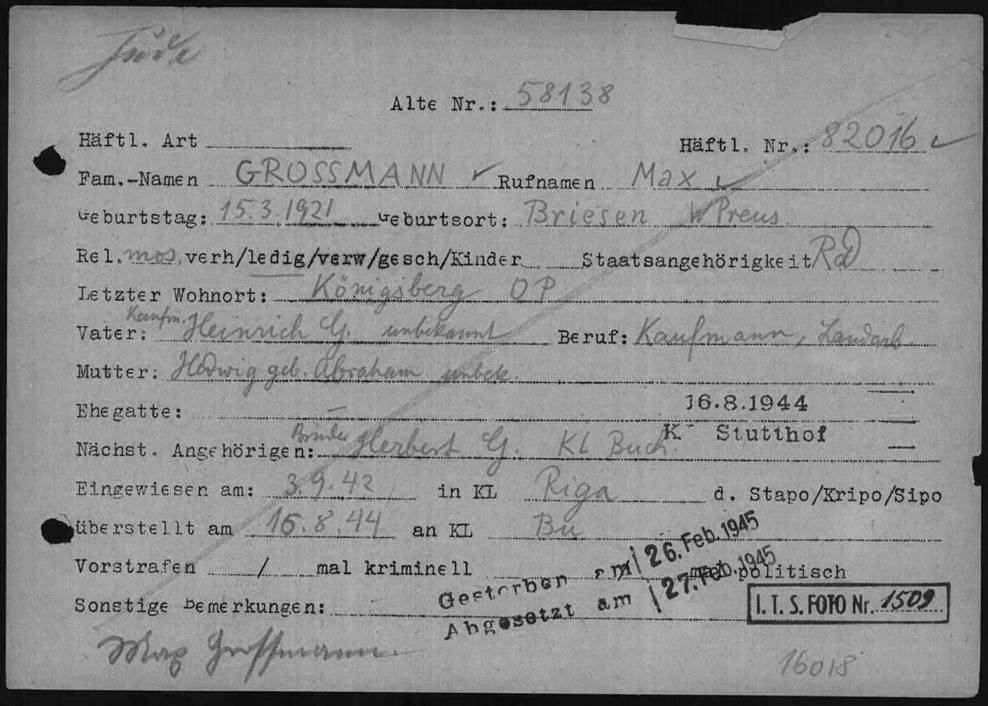 Jude
Alte Nr.: 58138
Häftl. Art Häftl. Nr.: 82016
Fam.-Namen GROSSMANN Rufnamen Max
Geburtstag: 15.3.1921 Geburtsort: Briesen WPreus.
Rel. mos. verh/ledig/verw/gesch/Kinder Staatsangehörigkeit RD
Letzter Wohnort: Königsberg OP
Kaufm.
Vater: Heinrich G. unbekannt Beruf: Kaufmann, Landarb
Mutter: Hedwig geb. Abraham unbek.
Ehegatte: — 16.8.1944
K Stutthof
Bruder
Nächst. Angehörigen: Herbert G. KL Buch.
Eingewiesen am: 3.9.42 in KL Riga d. Stapo/Kripo/Sipo
überstellt am 16.8.44 an KL Bu
Vorstrafen / mal kriminell mal politisch
Gestorben am 26. Feb. 1945
Sonstige Bemerkungen:
Abgesetzt am 27. Feb. 1945
I.T.S. FOTO Nr. 1509
Max Grossmann
16018